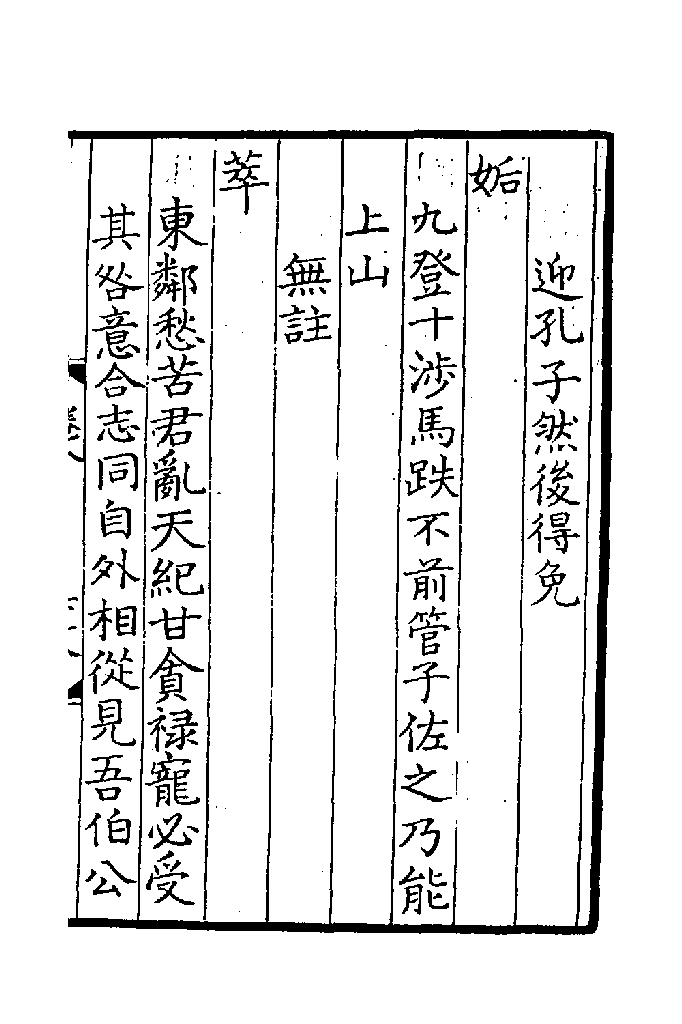 迎孔子然後得免
姤
九登十涉馬跌不前管子佐之乃能
上山
無註
萃
東鄰愁苦君亂天紀甘貪祿寵必受
其咎意合志同自外相從見吾伯公